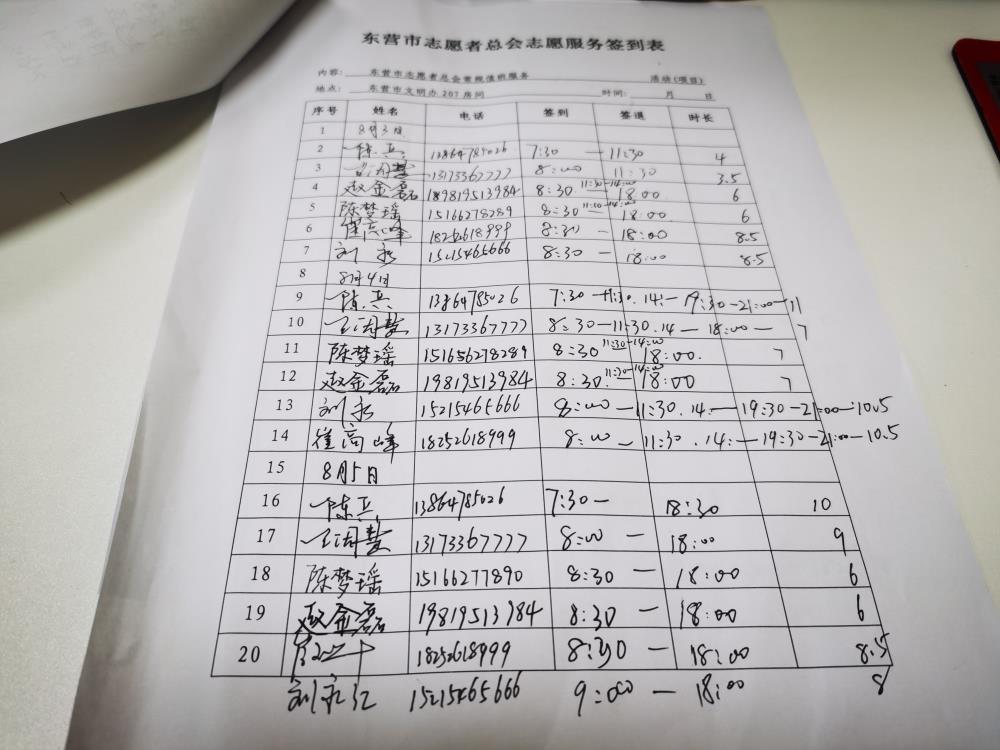 东营市志愿者总会志愿服务签到表
内容: 东营市志愿者总会常规值班服务 活动(项目)
地点: 东营市文明办207房间 时间: 月 日
序号 姓名 电话 签到 签退 时长
1 8月3日
2 陈兵 13864785026 7:30 — 11:30 4
3 13173367777 8:00 11:30 3.5
4 赵金磊 189819513984 8:30 11:30-14:00 18:00 6
5 陈梦瑶 15166278289 8:30 — 18:00 6
6 崔高峰 18252618999 8:30 — 18:00 8.5
7 刘永 15215465666 8:30 — 18:00 8.5
8 8月4日
9 陈兵 13864785026 7:30 — 11:30.14:— 19:30-21:00 — 11
10 13173367777 8:30-11:30.14 — 18:00 — 7
11 陈梦瑶 151656278289 8:30 11:30-14:00 18:00. 7
12 赵金磊 19819513984 8:30. 11:30-14:00 18:00 7
13 刘永 15215465666 8:00 — 11:30.14.— 19:30-21:00 — 10.5
14 崔高峰 18252618999 8:00 — 11:30.14:— 19:30-21:00 — 10.5
15 8月5日
16 陈兵 13864785026 7:30 — 18:30 10
17 13173367777 8:00 — 18:00 9
18 陈梦瑶 15166277890 8:30 — 18:00 6
19 赵金磊 19819513984 8:30 — 18:00 6
20 18252618999 8:30 — 18:00 8.5
刘永红 15215465666 9:00 — 18:00 8